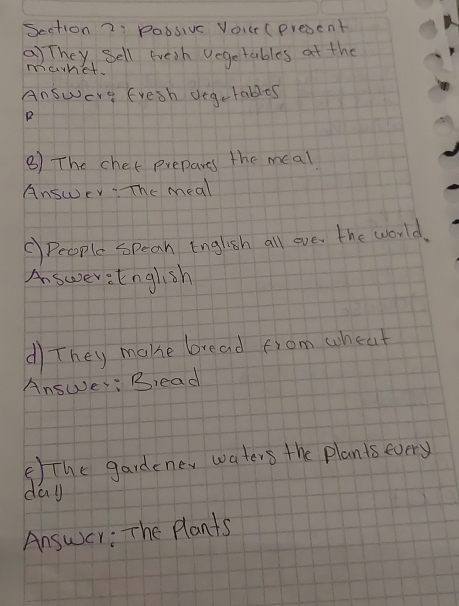 Section 2: Passive Voice (present
a) They Sell fresh vegetables at the
market.
Answer: fresh vegetables
B) The chef prepares the meal.
Answer: The meal
c) People speak English all over the world.
Answer: English
d) They make bread from wheat
Answer: Bread
e) The gardener waters the plants every
day
Answer: The Plants